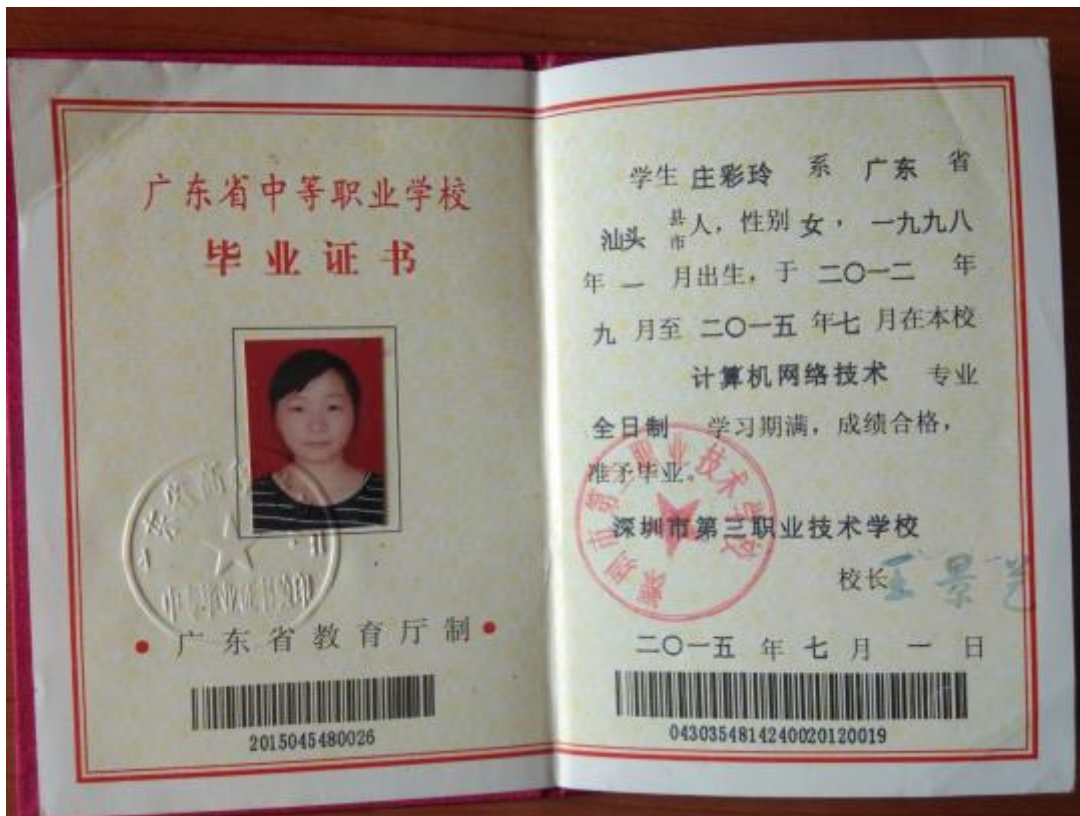 广东省中等职业学校
毕业证书
广东省教育厅制
2015045480026
学生 庄彩玲 系 广东 省
汕头 县市人，性别 女，一九九八
年 一 月出生，于 二〇一二 年
九 月至 二〇一五 年 七 月在本校
计算机网络技术 专业
全日制 学习期满，成绩合格，
准予毕业。
深圳市第三职业技术学校
深圳市第三职业技术学校
校长 王景艺
二〇一五 年 七 月 一 日
0430354814240020120019